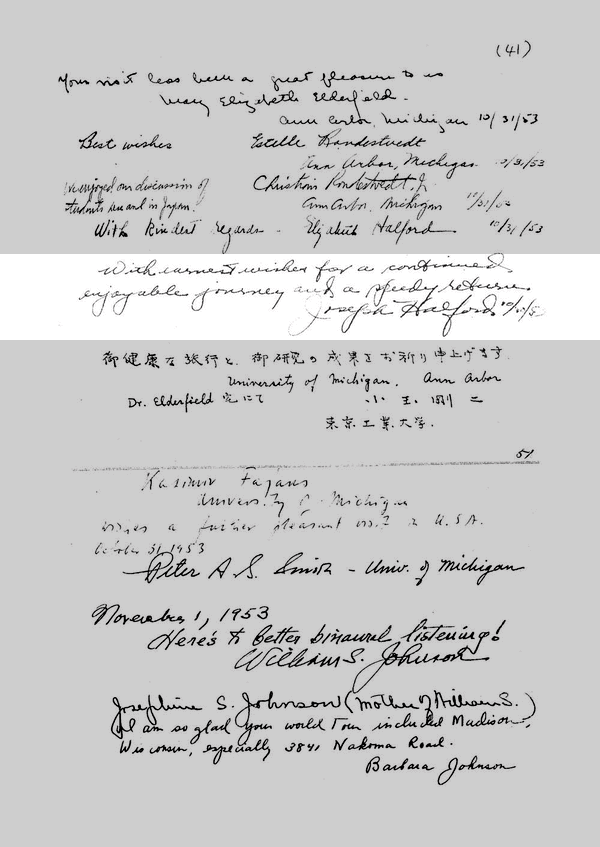 (41)
Your visit has been a great pleasure to us
Mary Elizabeth Elderfield.
Ann Arbor, Michigan 10/31/53
Best wishes Estelle Rondestvedt
Ann Arbor, Michigan 10/31/53
We enjoyed our discussion of Christian Rondestvedt, Jr.
students here and in Japan. Ann Arbor, Michigan 10/31/53
With kindest regards - Elizabeth Halford 10/31/53
With earnest wishes for a continued
enjoyable journey and a speedy return.
Joseph Halford 10/31/53
御健康な旅行と、御研究の成果をお祈り申上げます
University of Michigan, Ann Arbor
Dr. Elderfield 宅にて 小玉剛二
東京工業大学.
51
Kasimir Fajans
University of Michigan
wishes a further pleasant visit in U.S.A.
October 31, 1953
Peter A. S. Smith - Univ. of Michigan
November 1, 1953
Here's to better binaural listening!
William S. Johnson
Josephine S. Johnson (Mother of William S.)
I am so glad your world tour included Madison,
Wisconsin, especially 3841 Nakoma Road.
Barbara Johnson